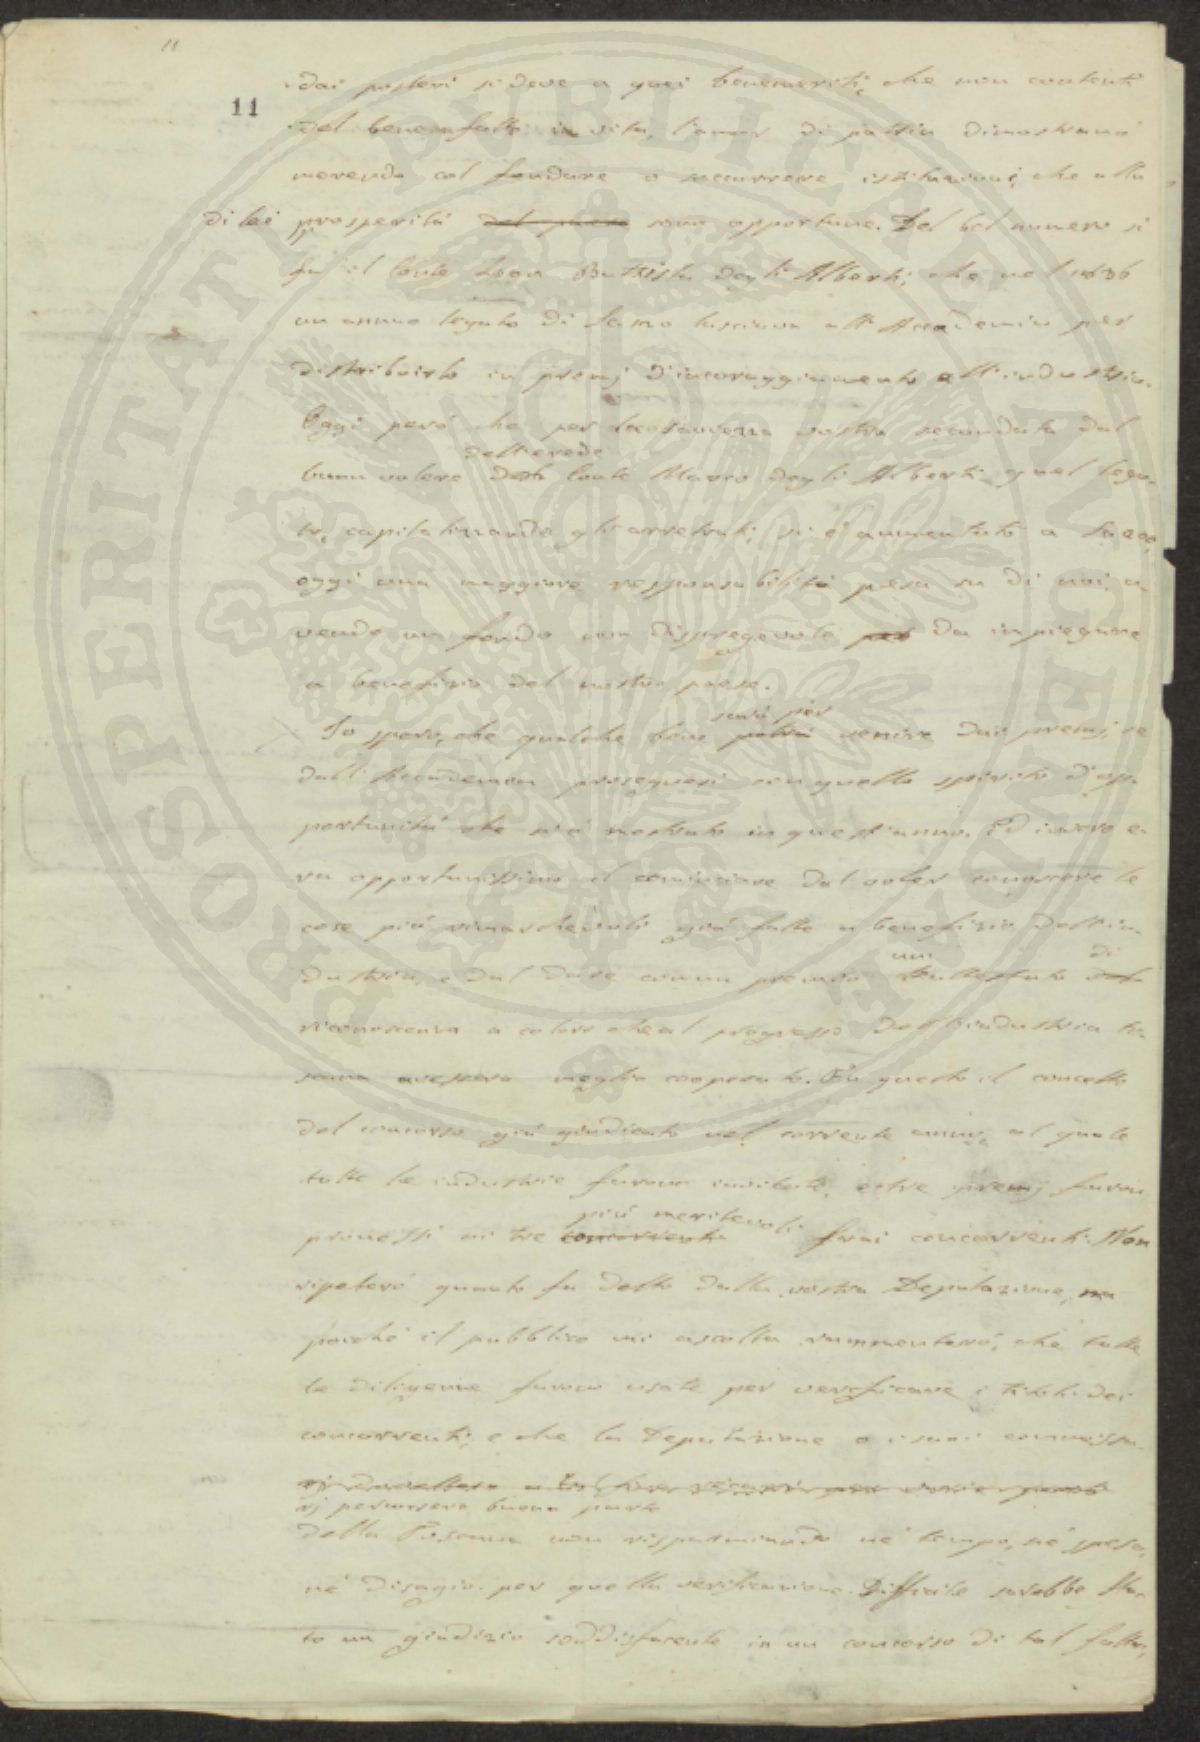 11
11
dai posteri si deve a quei benemeriti, che non contenti
del bene fatto in vita, l'amor di patria dimostrano
morendo col fondare o soccorrere istituzioni, che alla
di lei prosperità del paese sono opportune. Del bel numero si
fu il Conte Leon Battista degli Alberti, che nel 1836
un annuo legato di lasciava all'Accademia per
distribuirlo in premj d'incoraggiamento all'industria.
Oggi però che per vostra secondata dal
dell'erede
buon volere Conte Mauro degli Alberti quel lega-
to, capitalizzando gli arretrati, si è aumentato a
oggi una maggiore responsabilità pesa su di noi a-
vendo un fondo non dispregevole per da impiegare
a benefizio del nostro paese.
sarà per
Io spero, che qualche bene potrà venire dai premj, se
dall'Accademia proseguasi con quello spirito d'op-
portunità che si è mostrato in quest'anno. Ed invero e-
ra opportunissimo il cominciare dal voler conoscere le
cose più rimarchevoli già fatte a benefizio dell'in-
un di
dustria, e dal dare con un premio attestato
riconoscenza a coloro che al progresso dell'industria to-
scana avessero meglio cooperato. Fu questo il concetto
del concorso già giudicato nel corrente anno, al quale
tutte le industrie furono invitate, e tre premj furon
più meritevoli
promessi ai tre concorrenti frai concorrenti. Non
ripeterò quanto fu detto dalla vostra Deputazione, ma
poiché il pubblico mi ascolta rammenterò, che tutte
le diligenze furono usate per verificare i titoli dei
concorrenti, e che la Deputazione o i suoi commissa-
rj percorsero buona parte
della Toscana non risparmiando né tempo, né spesa,
né disagio per quella verificazione. Difficile sarebbe sta-
to un giudizio soddisfacente in un concorso di tal fatta,
PROSPERITATI PUBLICAE AUGENDAE